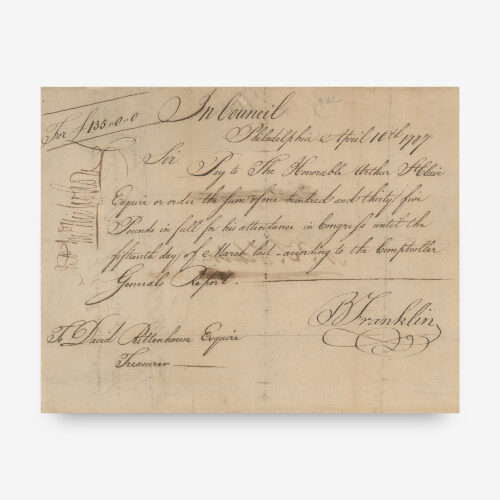 For £135..0..0
In Council
Philadelphia April 10th. 1787
Sir
Pay to The Honorable Arthur St Clair
Esquire or order the sum of one hundred and thirty five
Pounds in full for his attendance in Congress until the
fifteenth day of March last - according to the Comptroller
Generals Report.
B Franklin
To David Rittenhouse Esquire
Treasurer